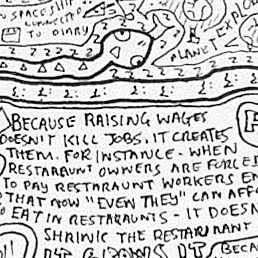 IN SPACESHIP
CONNECTED
TO DIARY
PLANET EXPLO
BECAUSE RAISING WAGES
DOESN'T KILL JOBS. IT CREATES
THEM. FOR INSTANCE - WHEN
RESTARAUNT OWNERS ARE FORCED
TO PAY RESTARAUNT WORKERS EN
THAT NOW "EVEN THEY" CAN AFFO
EAT IN RESTARAUNTS - IT DOESN
SHRINK THE RESTARAUNT
IT GROWS IT
BECA